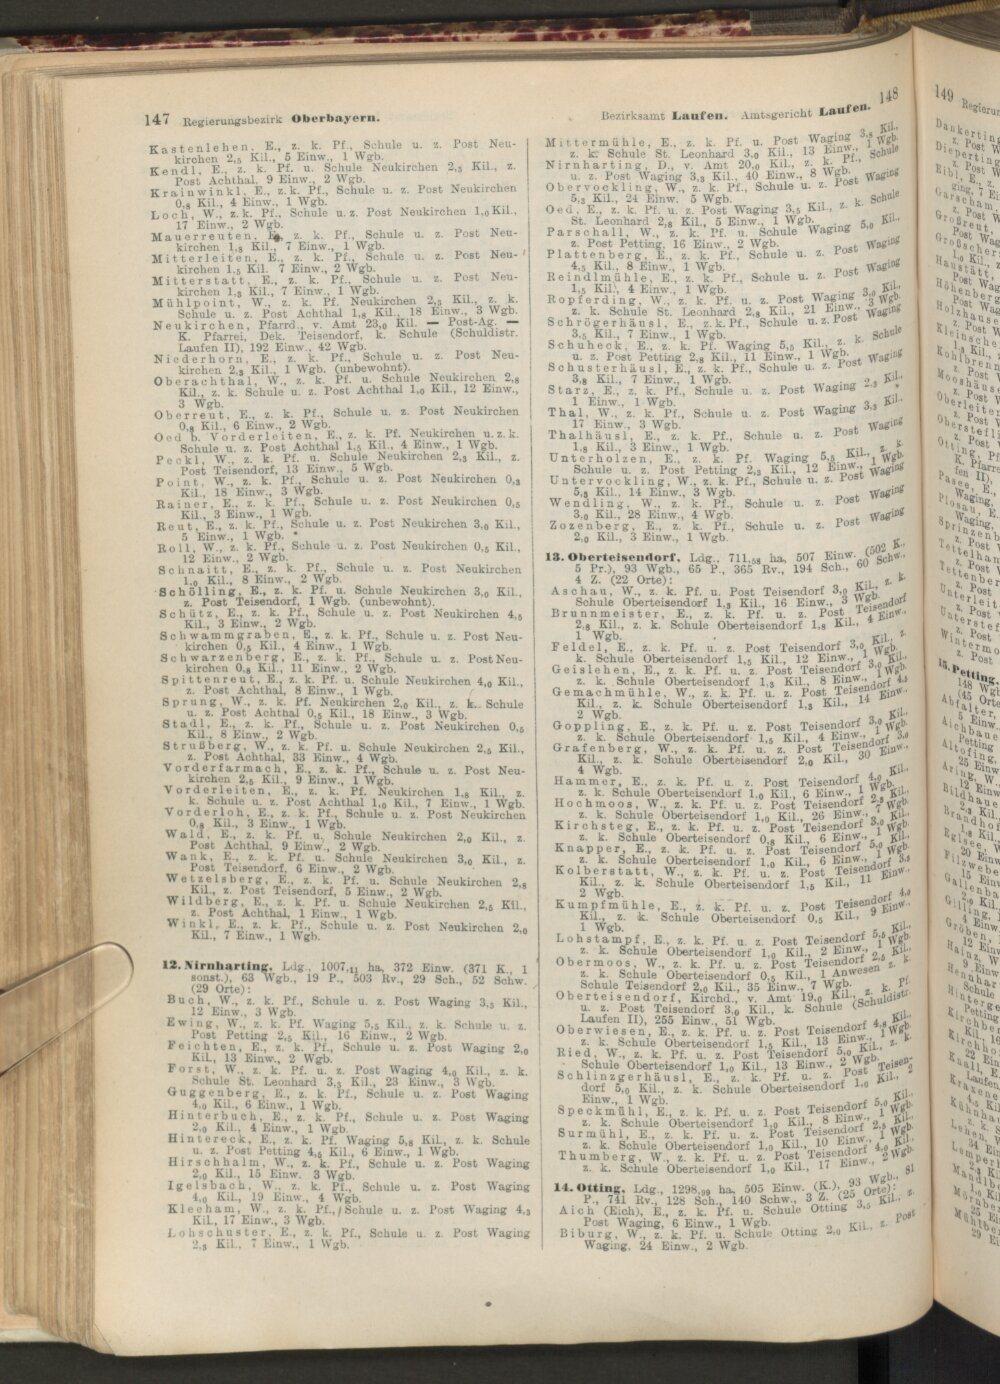 147 Regierungsbezirk Oberbayern.
Kastenlehen, E., z. k. Pf., Schule u. z. Post Neu-
kirchen 2,5 Kil., 5 Einw., 1 Wgb.
Kendl, E., z. k. Pf. u. Schule Neukirchen 2,3 Kil., z.
Post Achthal, 9 Einw., 2 Wgb.
Krainwinkl, E., z. k. Pf., Schule u. z. Post Neukirchen
0,8 Kil., 4 Einw., 1 Wgb.
Loch, W., z. k. Pf., Schule u. z. Post Neukirchen 1,0 Kil.,
17 Einw., 2 Wgb.
Mauerreuten, E., z. k. Pf., Schule u. z. Post Neu-
kirchen 1,8 Kil., 7 Einw., 1 Wgb.
Mitterleiten, E., z. k. Pf., Schule u. z. Post Neu-
kirchen 1,5 Kil. 7 Einw., 2 Wgb.
Mitterstatt, E., z. k. Pf., Schule u. z. Post Neu-
kirchen 1,8 Kil., 7 Einw., 1 Wgb.
Mühlpoint, W., z. k. Pf. Neukirchen 2,3 Kil., z. k.
Schule u. z. Post Achthal 1,8 Kil., 18 Einw., 3 Wgb.
Neukirchen, Pfarrd., v. Amt 23,0 Kil. — Post-Ag. —
K. Pfarrei, Dek. Teisendorf, k. Schule (Schuldistr.
Laufen II), 192 Einw., 42 Wgb.
Niederhorn, E., z. k. Pf., Schule u. z. Post Neu-
kirchen 2,3 Kil., 1 Wgb. (unbewohnt).
Oberachthal, W., z. k. Pf. u. Schule Neukirchen 2,8
Kil., z. k. Schule u. z. Post Achthal 1,0 Kil., 12 Einw.,
3 Wgb.
Oberreut, E., z. k. Pf., Schule u. z. Post Neukirchen
0,8 Kil., 6 Einw., 2 Wgb.
Oed b. Vorderleiten, E., z. k. Pf. Neukirchen u. z. k.
Schule u. z. Post Achthal 1,5 Kil., 4 Einw., 1 Wgb.
Peckl, W., z. k. Pf. u. Schule Neukirchen 2,3 Kil., z.
Post Teisendorf, 13 Einw., 5 Wgb.
Point, W., z. k. Pf., Schule u. z. Post Neukirchen 0,3
Kil., 18 Einw., 3 Wgb.
Rainer, E., z. k. Pf., Schule u. z. Post Neukirchen 0,5
Kil., 3 Einw., 1 Wgb.
Reut, E., z. k. Pf., Schule u. z. Post Neukirchen 3,0 Kil.,
5 Einw., 1 Wgb.
Roll, W., z. k. Pf., Schule u. z. Post Neukirchen 0,5 Kil.,
12 Einw., 2 Wgb.
Schnaitt, E., z. k. Pf., Schule u. z. Post Neukirchen
1,0 Kil., 8 Einw., 2 Wgb.
Schölling, E., z. k. Pf. u. Schule Neukirchen 3,0 Kil.,
z. Post Teisendorf, 1 Wgb. (unbewohnt).
Schütz, E., z. k. Pf., Schule u. z. Post Neukirchen 4,5
Kil., 3 Einw., 2 Wgb.
Schwammgraben, E., z. k. Pf., Schule u. z. Post Neu-
kirchen 0,5 Kil., 4 Einw., 1 Wgb.
Schwarzenberg, E., z. k. Pf., Schule u. z. Post Neu-
kirchen 0,8 Kil., 11 Einw., 2 Wgb.
Spittenreut, E., z. k. Pf. u. Schule Neukirchen 4,0 Kil.,
z. Post Achthal, 8 Einw., 1 Wgb.
Sprung, W., z. k. Pf. Neukirchen 2,0 Kil., z. k. Schule
u. z. Post Achthal 0,5 Kil., 18 Einw., 3 Wgb.
Stadl, E., z. k. Pf., Schule u. z. Post Neukirchen 0,5
Kil., 8 Einw., 2 Wgb.
Strußberg, W., z. k. Pf. u. Schule Neukirchen 2,5 Kil.,
z. Post Achthal, 33 Einw., 4 Wgb.
Vorderfarmach, E., z. k. Pf., Schule u. z. Post Neu-
kirchen 2,5 Kil., 9 Einw., 1 Wgb.
Vorderleiten, E., z. k. Pf. Neukirchen 1,8 Kil., z.
k. Schule u. z. Post Achthal 1,0 Kil., 7 Einw., 1 Wgb.
Vorderloh, E., z. k. Pf., Schule u. z. Post Neukirchen
0,8 Kil., 3 Einw., 1 Wgb.
Wald, E., z. k. Pf. u. Schule Neukirchen 2,0 Kil., z.
Post Achthal, 9 Einw., 2 Wgb.
Wank, E., z. k. Pf. u. Schule Neukirchen 3,0 Kil., z.
Post Teisendorf, 6 Einw., 2 Wgb.
Wetzelsberg, E., z. k. Pf. u. Schule Neukirchen 2,8
Kil., z. Post Teisendorf, 5 Einw., 2 Wgb.
Wildberg, E., z. k. Pf. u. Schule Neukirchen 2,5 Kil.,
z. Post Achthal, 1 Einw., 1 Wgb.
Winkl, E., z. k. Pf., Schule u. z. Post Neukirchen 2,0
Kil., 7 Einw., 1 Wgb.
12. Nirnharting, Ldg., 1007,11 ha, 372 Einw. (371 K., 1
sonst.), 63 Wgb., 19 P., 503 Rv., 29 Sch., 52 Schw.
(29 Orte):
Buch, W., z. k. Pf., Schule u. z. Post Waging 3,5 Kil.,
12 Einw., 3 Wgb.
Ewing, W., z. k. Pf. Waging 5,5 Kil., z. k. Schule u. z.
Post Petting 2,5 Kil., 16 Einw., 2 Wgb.
Feichten, E., z. k. Pf., Schule u. z. Post Waging 2,0
Kil., 13 Einw., 2 Wgb.
Forst, W., z. k. Pf. u. z. Post Waging 4,0 Kil., z. k.
Schule St. Leonhard 3,3 Kil., 23 Einw., 3 Wgb.
Guggenberg, E., z. k. Pf., Schule u. z. Post Waging
4,0 Kil., 6 Einw., 1 Wgb.
Hinterbuch, E., z. k. Pf., Schule u. z. Post Waging
2,0 Kil., 4 Einw., 1 Wgb.
Hintereck, E., z. k. Pf. Waging 5,8 Kil., z. k. Schule
u. z. Post Petting 4,5 Kil., 6 Einw., 1 Wgb.
Hirschhalm, W., z. k. Pf., Schule u. z. Post Waging
2,0 Kil., 15 Einw. 3 Wgb.
Igelsbach, W., z. k. Pf., Schule u. z. Post Waging
4,0 Kil., 19 Einw., 4 Wgb.
Kleeham, W., z. k. Pf., Schule u. z. Post Waging 4,3
Kil., 17 Einw., 3 Wgb.
Lohschuster, E., z. k. Pf., Schule u. z. Post Waging
2,8 Kil., 7 Einw., 1 Wgb.
Bezirksamt Laufen. Amtsgericht Laufen. 148
Mittermühle, E., z. k. Pf. u. Post Waging 3,8 Kil.,
z. k. Schule St. Leonhard 3,0 Kil., 13 Einw., 1 Wgb.
Nirnharting, D., v. Amt 20,0 Kil., z. k. Pf., Schule
u. z. Post Waging 3,3 Kil., 40 Einw., 8 Wgb.
Obervockling, W., z. k. Pf., Schule u. z. Post Waging
5,3 Kil., 24 Einw. 5 Wgb.
Oed, E., z. k. Pf. u. z. Post Waging 3,5 Kil., z. k. Schule
St. Leonhard 2,8 Kil., 5 Einw., 1 Wgb.
Parschall, W., z. k. Pf. u. Schule Waging 5,0 Kil.,
z. Post Petting, 16 Einw., 2 Wgb.
Plattenberg, E., z. k. Pf., Schule u. z. Post Waging
4,5 Kil., 8 Einw., 1 Wgb.
Reindlmühle, E., z. k. Pf., Schule u. z. Post Waging
1,5 Kil., 4 Einw., 1 Wgb.
Ropferding, W., z. k. Pf. u. z. Post Waging 3,0 Kil.,
z. k. Schule St. Leonhard 2,8 Kil., 21 Einw., 3 Wgb.
Schrögerhäusl, E., z. k. Pf., Schule u. z. Post Waging
3,5 Kil., 7 Einw., 1 Wgb.
Schuheck, E., z. k. Pf. Waging 5,5 Kil., z. k. Schule
u. z. Post Petting 2,8 Kil., 11 Einw., 1 Wgb.
Schusterhäusl, E., z. k. Pf., Schule u. z. Post Waging
3,8 Kil., 7 Einw., 1 Wgb.
Starz, E., z. k. Pf., Schule u. z. Post Waging 2,3 Kil.,
1 Einw., 1 Wgb.
Thal, W., z. k. Pf., Schule u. z. Post Waging 3,3 Kil.,
17 Einw., 3 Wgb.
Thalhäusl, E., z. k. Pf., Schule u. z. Post Waging
1,8 Kil., 3 Einw., 1 Wgb.
Unterholzen, E., z. k. Pf. Waging 5,5 Kil., z. k.
Schule u. z. Post Petting 2,3 Kil., 12 Einw., 1 Wgb.
Untervockling, W., z. k. Pf., Schule u. z. Post Waging
5,8 Kil., 14 Einw., 3 Wgb.
Wendling, W., z. k. Pf., Schule u. z. Post Waging
3,0 Kil., 28 Einw., 4 Wgb.
Zozenberg, E., z. k. Pf., Schule u. z. Post Waging
2,0 Kil., 3 Einw., 1 Wgb.
13. Oberteisendorf, Ldg., 711,58 ha, 507 Einw. (502 K.,
5 Pr.), 93 Wgb., 65 P., 365 Rv., 194 Sch., 60 Schw.,
4 Z. (22 Orte):
Aschau, W., z. k. Pf. u. z. Post Teisendorf 3,0 Kil., z. k.
Schule Oberteisendorf 1,3 Kil., 16 Einw., 3 Wgb.
Brunnmeister, E., z. k. Pf. u. z. Post Teisendorf
2,8 Kil., z. k. Schule Oberteisendorf 1,8 Kil., 4 Einw.,
1 Wgb.
Feldel, E., z. k. Pf. u. z. Post Teisendorf 3,0 Kil., z.
k. Schule Oberteisendorf 1,5 Kil., 12 Einw., 1 Wgb.
Geislehen, E., z. k. Pf. u. z. Post Teisendorf 3,0 Kil.,
z. k. Schule Oberteisendorf 1,3 Kil., 8 Einw., 1 Wgb.
Gemachmühle, W., z. k. Pf. u. z. Post Teisendorf 4,5
Kil., z. k. Schule Oberteisendorf 1,3 Kil., 14 Einw.,
2 Wgb.
Goppling, E., z. k. Pf. u. z. Post Teisendorf 3,0 Kil.,
z. k. Schule Oberteisendorf 1,5 Kil., 4 Einw., 1 Wgb.
Grafenberg, W., z. k. Pf. u. z. Post Teisendorf 3,0
Kil., z. k. Schule Oberteisendorf 2,0 Kil., 30 Einw.,
4 Wgb.
Hammer, E., z. k. Pf. u. z. Post Teisendorf 4,0 Kil.,
z. k. Schule Oberteisendorf 1,0 Kil., 6 Einw., 1 Wgb.
Hochmoos, W., z. k. Pf. u. z. Post Teisendorf 2,8 Kil.,
z. k. Schule Oberteisendorf 1,0 Kil., 26 Einw., 7 Wgb.
Kirchsteg, E., z. k. Pf. u. z. Post Teisendorf 3,0 Kil.,
z. k. Schule Oberteisendorf 0,8 Kil., 6 Einw., 1 Wgb.
Knapper, E., z. k. Pf. u. z. Post Teisendorf 5,0 Kil.,
z. k. Schule Oberteisendorf 1,0 Kil., 6 Einw., 1 Wgb.
Kolberstatt, W., z. k. Pf. u. z. Post Teisendorf 3,5
Kil., z. k. Schule Oberteisendorf 1,5 Kil., 11 Einw.,
2 Wgb.
Kumpfmühle, E., z. k. Pf. u. z. Post Teisendorf 4,0
Kil., z. k. Schule Oberteisendorf 0,5 Kil., 9 Einw.,
1 Wgb.
Lohstampf, E., z. k. Pf. u. z. Post Teisendorf 5,5 Kil.,
z. k. Schule Oberteisendorf 1,0 Kil., 2 Einw., 1 Wgb.
Obermoos, W., z. k. Pf. u. z. Post Teisendorf 2,5 Kil.,
z. k. Schule Oberteisendorf 0,5 Kil., 1 Anwesen z. k.
Schule Teisendorf 2,0 Kil., 35 Einw., 7 Wgb.
Oberteisendorf, Kirchd., v. Amt 19,0 Kil., z. k. Pf.
u. z. Post Teisendorf 3,0 Kil., k. Schule (Schuldistr.
Laufen II), 255 Einw., 51 Wgb.
Oberwiesen, E., z. k. Pf. u. z. Post Teisendorf 4,8 Kil.,
z. k. Schule Oberteisendorf 1,5 Kil., 13 Einw., 1 Wgb.
Ried, W., z. k. Pf. u. z. Post Teisendorf 5,0 Kil., z. k.
Schule Oberteisendorf 1,0 Kil., 13 Einw., 2 Wgb.
Schlinzgerhäusl, E., z. k. Pf. u. z. Post Teisen-
dorf 5,0 Kil., z. k. Schule Oberteisendorf 1,0 Kil., 2
Einw., 1 Wgb.
Speckmühl, E., z. k. Pf. u. z. Post Teisendorf 5,0 Kil.,
z. k. Schule Oberteisendorf 1,0 Kil., 8 Einw., 1 Wgb.
Surmühl, E., z. k. Pf. u. z. Post Teisendorf 2,5 Kil.,
z. k. Schule Oberteisendorf 1,0 Kil., 10 Einw., 1 Wgb.
Thumberg, W., z. k. Pf. u. z. Post Teisendorf 4,0 Kil.,
z. k. Schule Oberteisendorf 1,0 Kil., 17 Einw., 2 Wgb.
14. Otting, Ldg., 1298,99 ha, 505 Einw. (K.), 93 Wgb., 81
P., 741 Rv., 128 Sch., 140 Schw., 3 Z. (25 Orte):
Aich (Eich), E., z. k. Pf. u. Schule Otting 3,5 Kil., z.
Post Waging, 6 Einw., 1 Wgb.
Biburg, W., z. k. Pf. u. Schule Otting 2,0 Kil., z. Post
Waging, 24 Einw., 2 Wgb.
149
15. Petting,